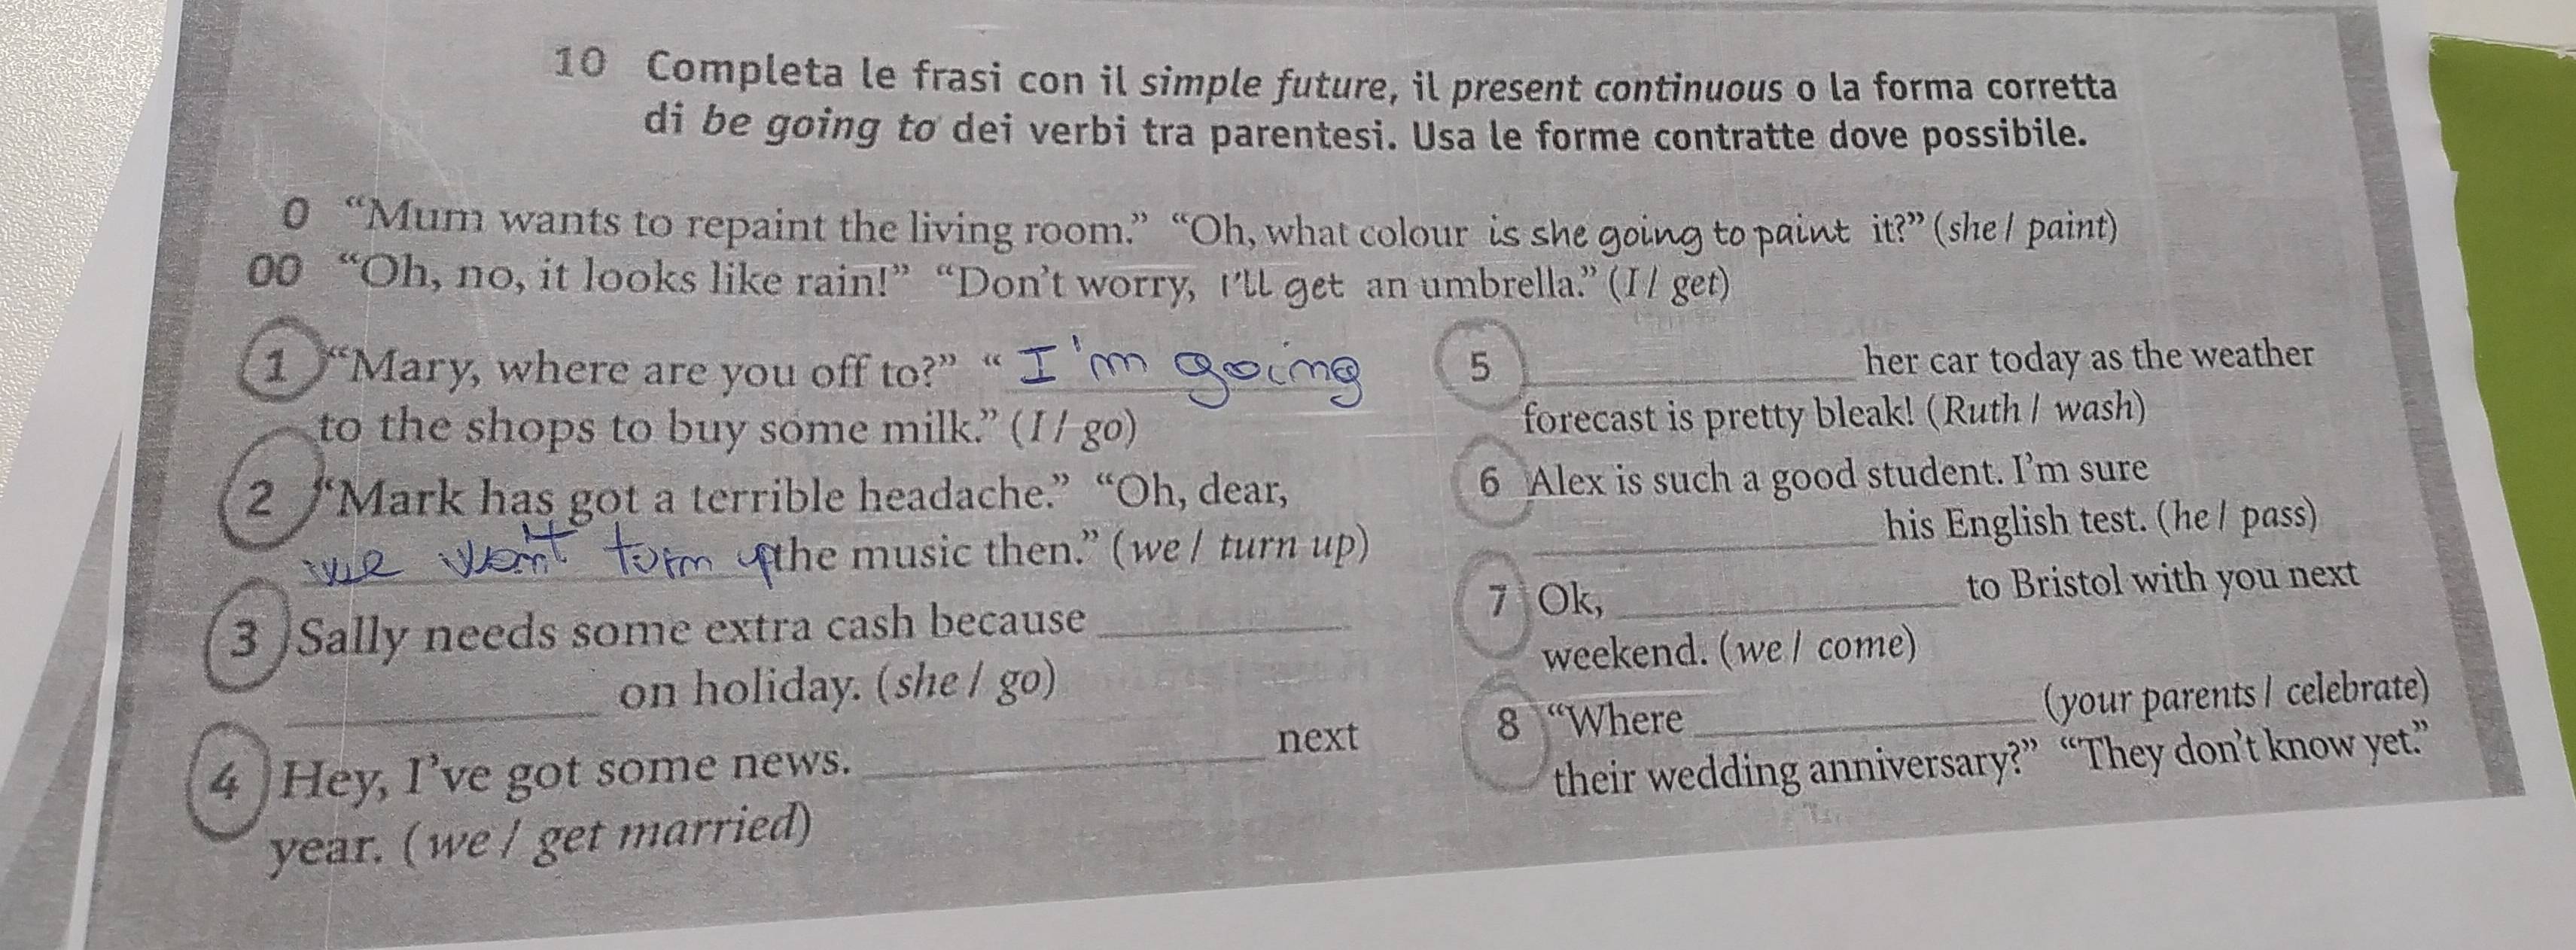 10 Completa le frasi con il simple future, il present continuous o la forma corretta
di be going to dei verbi tra parentesi. Usa le forme contratte dove possibile.
0 “Mum wants to repaint the living room.” “Oh, what colour is she going to paint it?” (she / paint)
00 “Oh, no, it looks like rain!” “Don’t worry, I’ll get an umbrella.” (I / get)
1 “Mary, where are you off to?” “ I'm going
to the shops to buy some milk.” (I / go)
2 “Mark has got a terrible headache.” “Oh, dear,
we won't turn up the music then.” (we / turn up)
3 Sally needs some extra cash because
on holiday. (she / go)
4 Hey, I’ve got some news. next
year. (we / get married)
5 her car today as the weather
forecast is pretty bleak! (Ruth / wash)
6 Alex is such a good student. I’m sure
his English test. (he / pass)
7 Ok, to Bristol with you next
weekend. (we / come)
8 “Where (your parents / celebrate)
their wedding anniversary?” “They don’t know yet.”